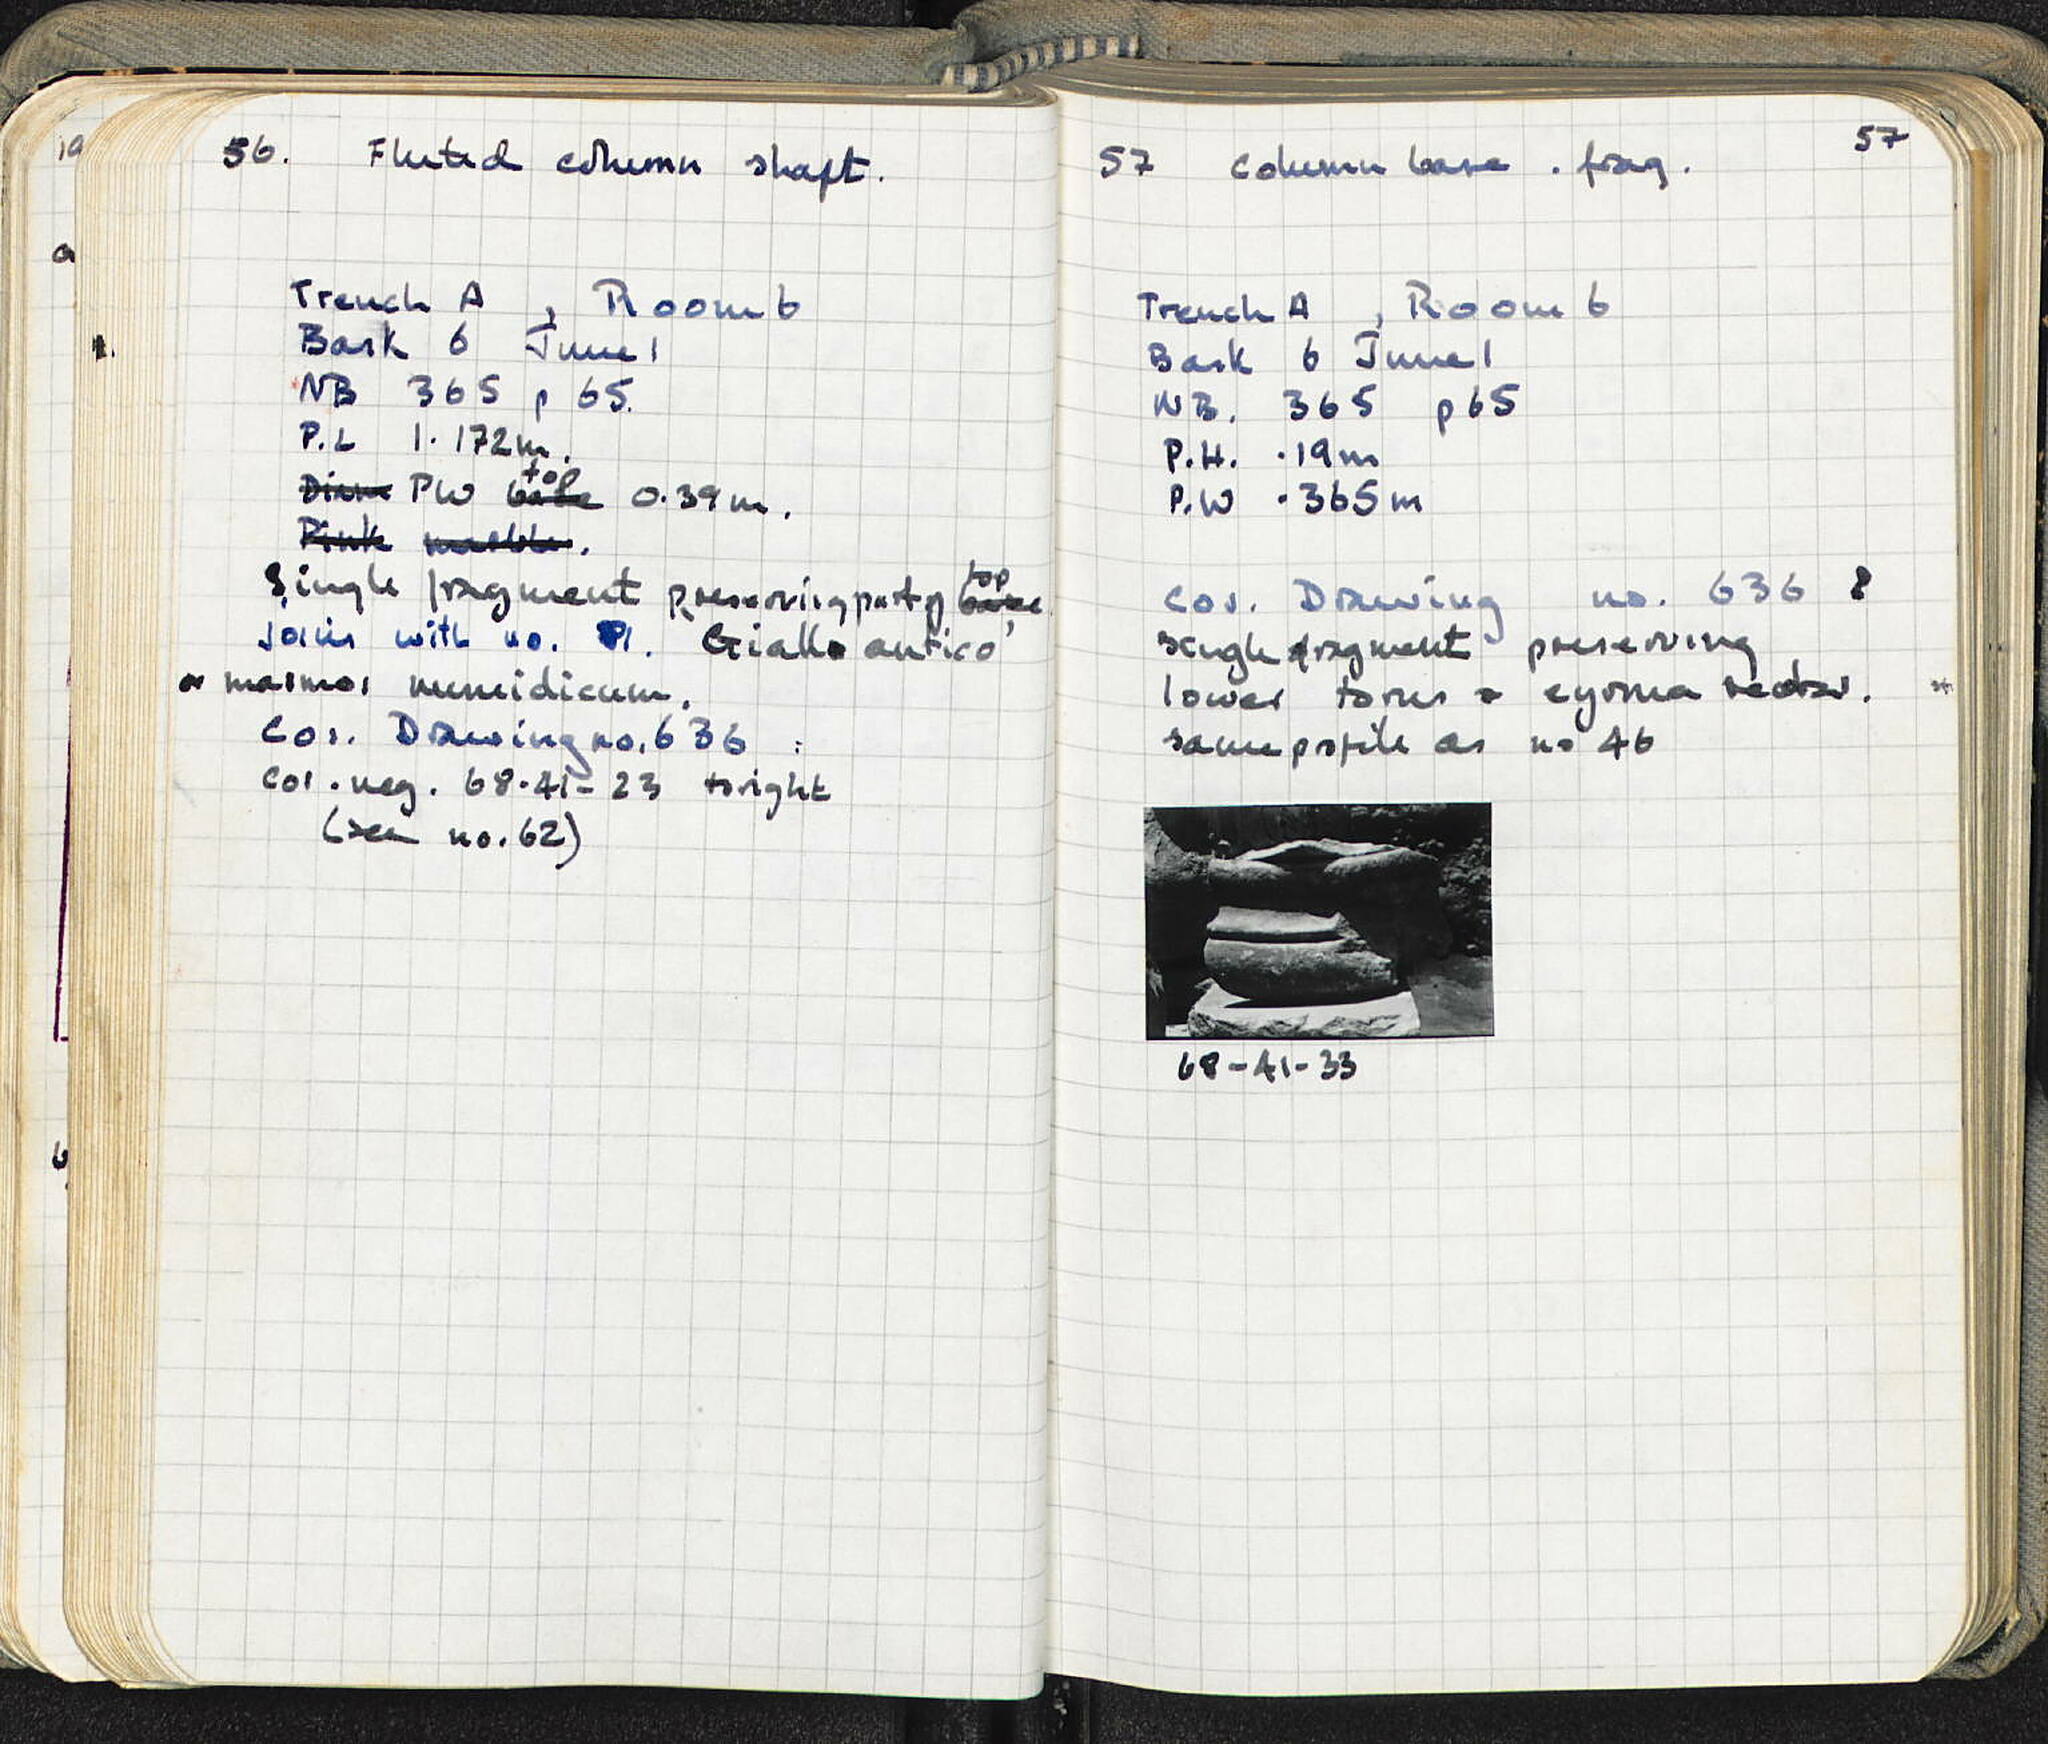 56. Fluted column shaft.
Trench A , Room 6
Bask 6 June 1
NB 365 p 65.
P.L 1.172m.
Diam PW base top 0.39m.
Pink marble.
Single fragment preserving part of base top
Joins with no. 1. Giallo antico,
or marmor numidicum.
Cor. Drawing no. 636 :
Cor. neg. 68-41-23 to right
(see no. 62)
57
57 Column base . frag.
Trench A , Room 6
Bask 6 June 1
NB. 365 p 65
P.H. .19m
P.W .365m
Cor. Drawing no. 636 ?
Single fragment preserving
lower torus + cyma
same profile as no 46
68-41-33